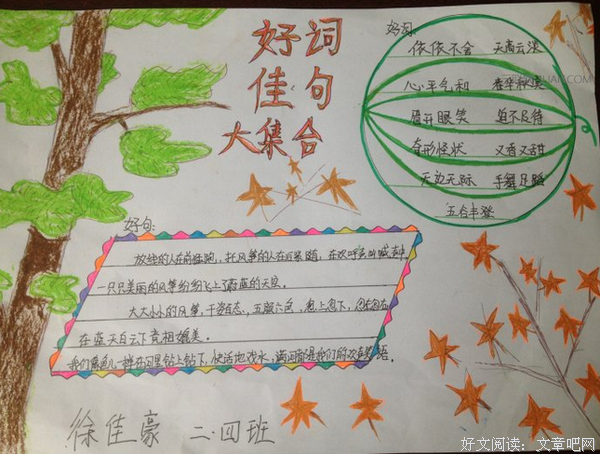 好词
佳句
大集合
好词:
依依不舍 天高云淡
心平气和 春华秋实
眉开眼笑 迫不及待
奇形怪状 又香又甜
无边无际 手舞足蹈
五谷丰登
好句:
放线的人在前 跑,托风筝的人在后 ,在欢呼 喊声中
一只只美丽的风筝纷纷飞上了蔚蓝的天空。
大大小小的风筝,千姿百态,五颜六色,忽上忽下,
在蓝天白云下竞相媲美。
我们像鱼儿一样在河里钻上钻下,快活地戏水,满河都是我们的欢声笑语。
徐佳豪 二·四班
好文阅读:文章吧网